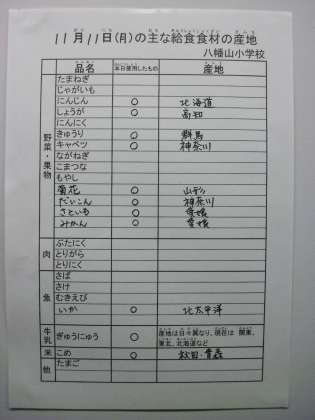 11月11日(月)の主な給食食材の産地
八幡山小学校
品名 本日使用したもの 産地
野菜・果物
たまねぎ
じゃがいも
にんじん ○ 北海道
しょうが ○ 高知
にんにく
きゅうり ○ 群馬
キャベツ ○ 神奈川
ながねぎ
こまつな
もやし
菊花 ○ 山形
だいこん ○ 神奈川
さといも ○ 愛媛
みかん ○ 愛媛
肉
ぶたにく
とりがら
とりにく
魚
さば
さけ
むきえび
いか ○ 北太平洋
牛乳 ぎゅうにゅう ○ 産地は日々異なり、現在は 関東、
東北、北海道など
米 こめ ○ 秋田・青森
他 たまご